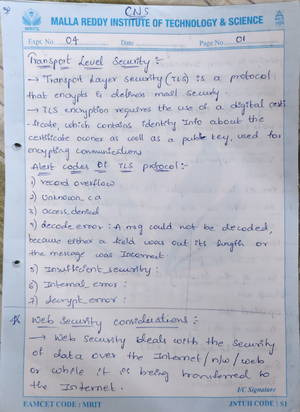 CNS
MRITS
MALLA REDDY INSTITUTE OF TECHNOLOGY & SCIENCE
Expt. No. 04 Date Page No. 01
Transport Level Security :-
→ Transport Layer Security (TLS) is a protocol
that encrypts & delivers mail securly.
→ TLS encryption requires the use of a digital certi
-ficate, which contains identity Info about the
certificate owner as well as a public key, used for
encypting communications
Alert codes Of TLS protocol :-
1) record overflow
2) Unknown_ca
3) access_denied
4) decode error : A msg could not be decoded,
because either a field was out its length or
the message was Incorrect.
5) Insufficient_security :
6) Internal_error :
7) decrypt_error :
Web Security considerations :-
→ Web security deals with the security
of data over the Internet / n/w / web
or while it is being transferred to
the Internet.
I/C Signature
EAMCET CODE : MRIT JNTUH CODE : S1